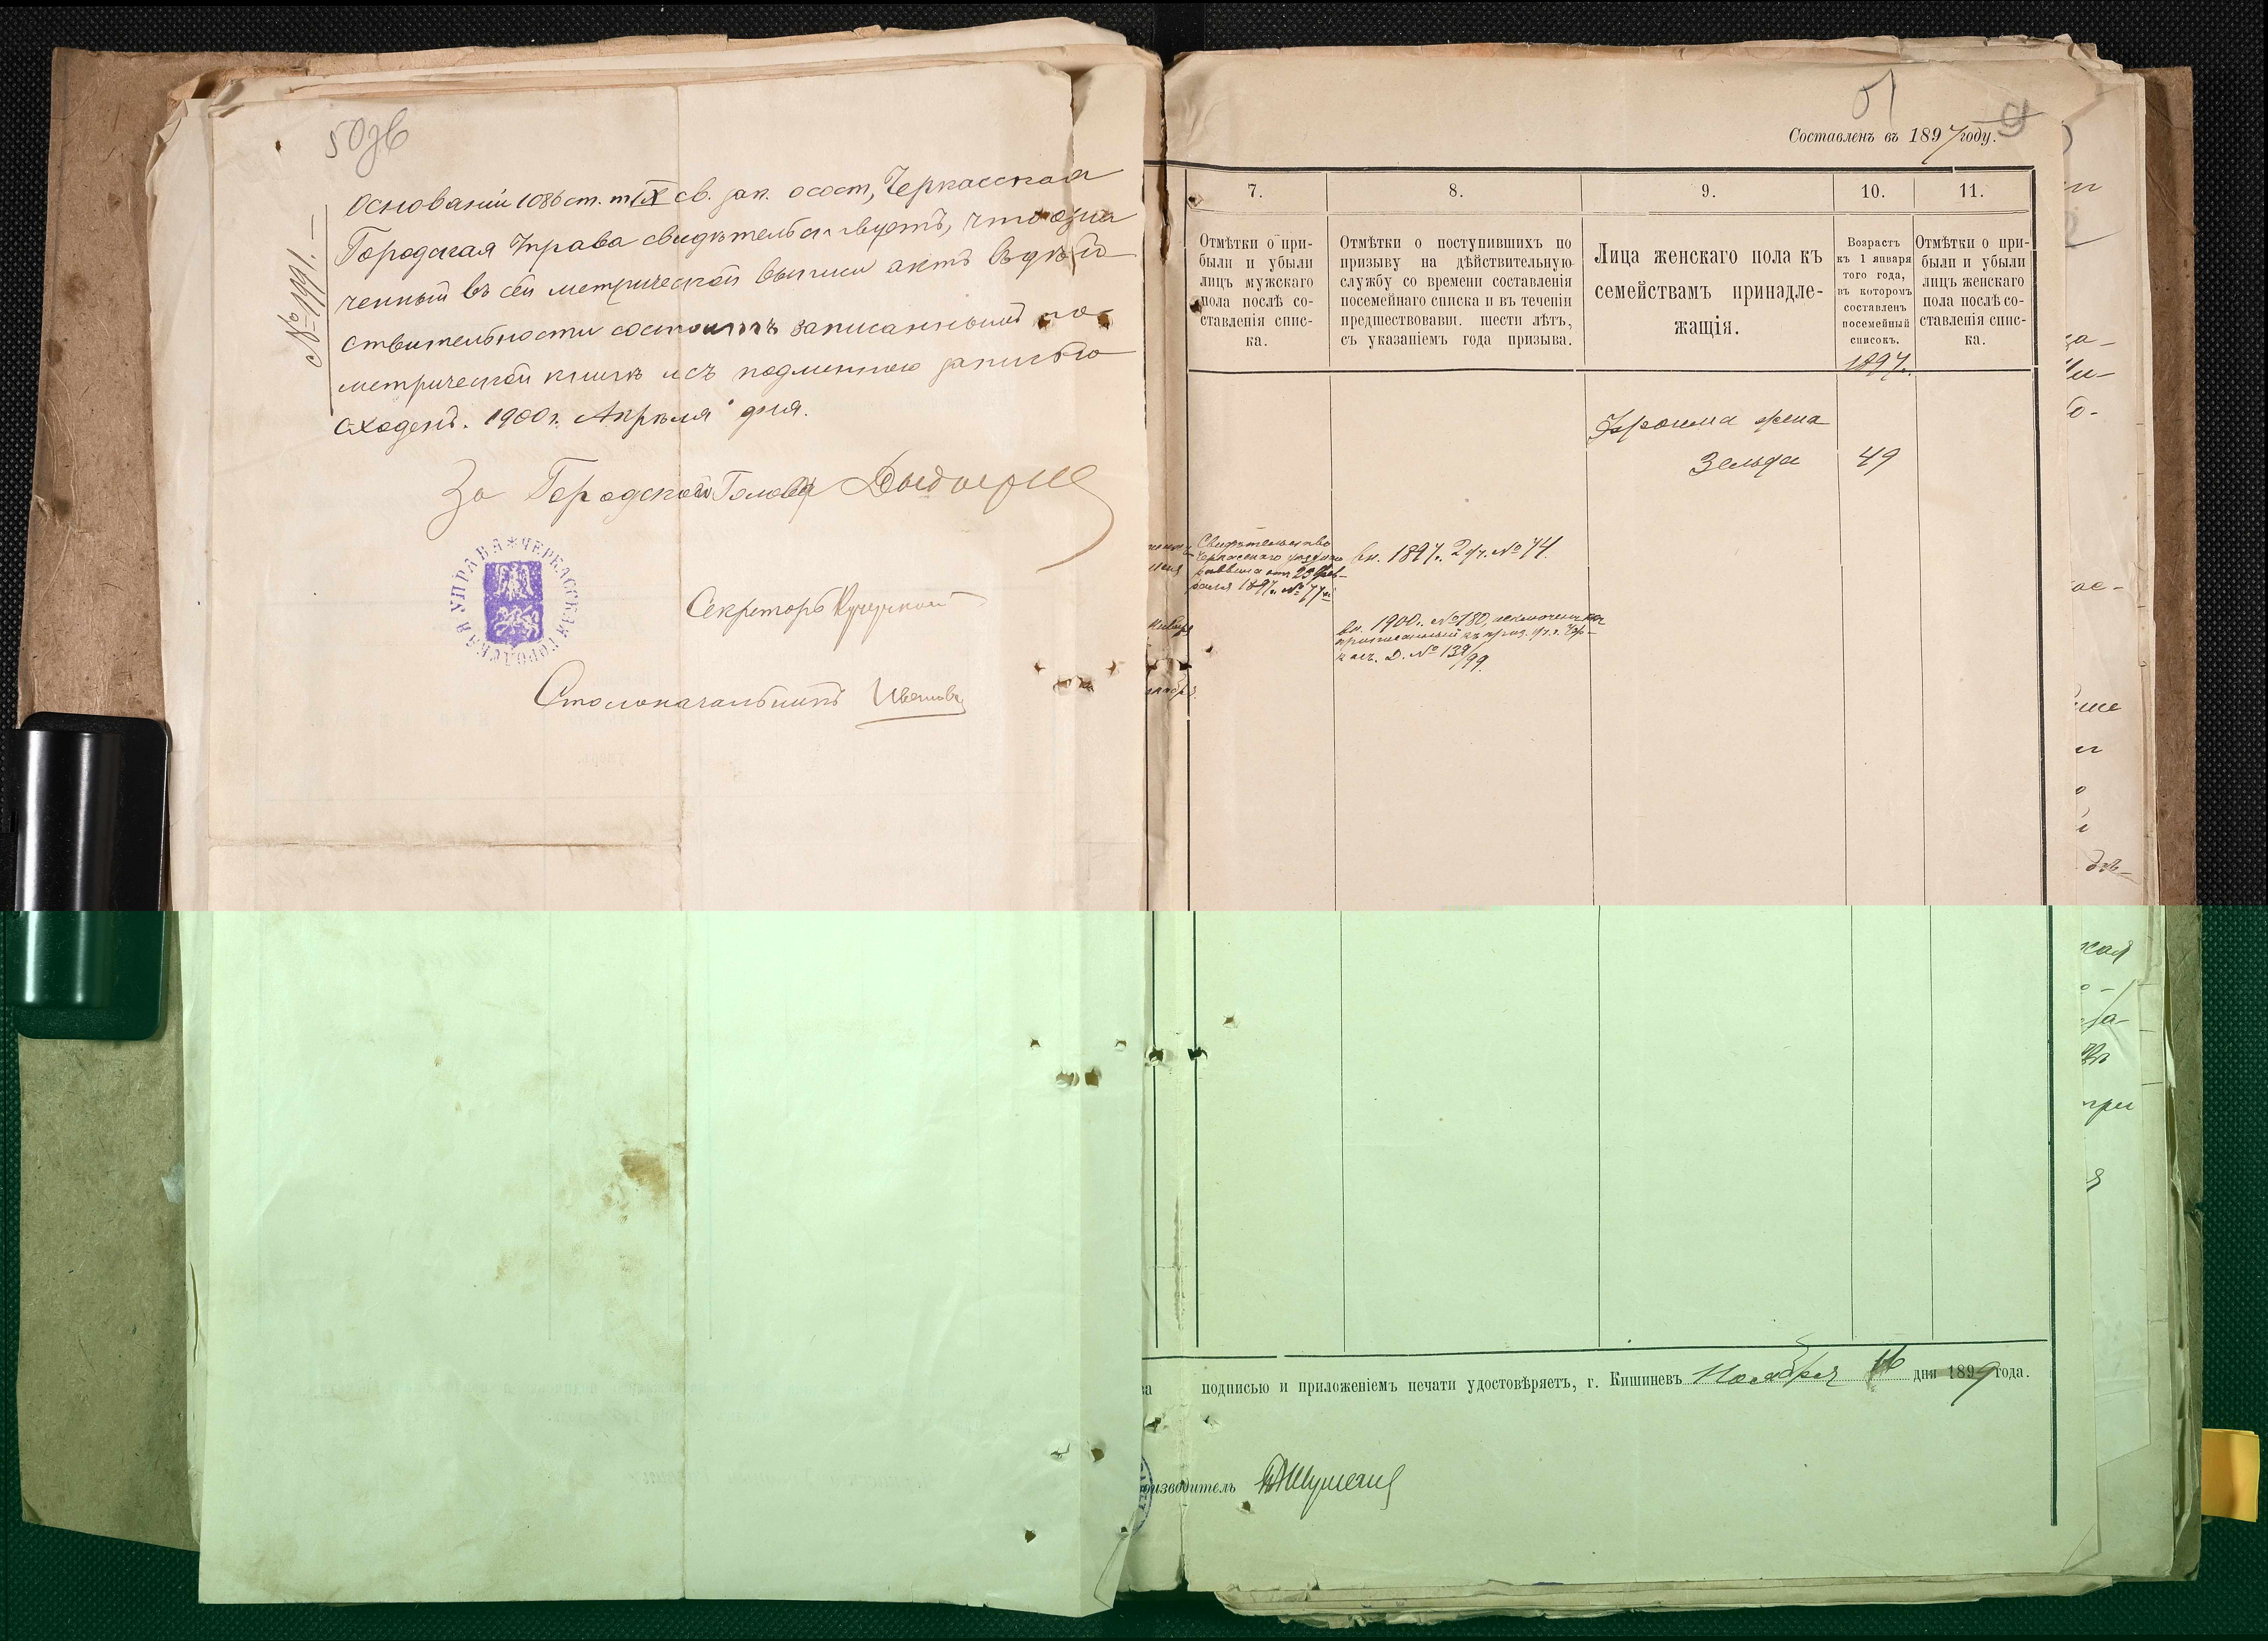 50зв
№ 1991.
Основаніи 1086 ст. т IX св. зак. о сост, Черкасская
Городская Управа свидѣтельствуетъ, что озна
ченный въ сей метрической выписи актъ въ дѣй-
ствительности состоитъ записаннымъ по
метрической книгѣ и съ подлинною записью
сходенъ. 1900 г. Апрѣля дня.
За Городского Голову
ЧЕРКАССКАЯ ГОРОДСКАЯ УПРАВА
Секретарь
Столоначальникъ Ивановъ
51
9
Составленъ въ 1897 году.
7.
8.
9.
10.
11.
Отмѣтки о при-
были и убыли
лицъ мужскаго
пола послѣ со-
ставленія спис-
ка.
Отмѣтки о поступившихъ по
призыву на дѣйствительную
службу со времени составленія
посемейнаго списка и въ теченіи
предшествовавш. шести лѣтъ,
съ указаніемъ года призыва.
Лица женскаго пола къ
семействамъ принадле-
жащія.
Возрастъ
къ 1 января
того года,
въ которомъ
составленъ
посемейный
списокъ.
1897.
Отмѣтки о при-
были и убыли
лицъ женскаго
пола послѣ со-
ставленія спис-
ка.
Фроима жена
Зельда 49
Свидѣтельство
Черкасскаго уѣзднаго
раввина отъ 23 Фев-
раля 1897 г. № 77
вн. 1897 г. 2 уч. № 74.
вн. 1900 г. № 180, исключенъ какъ
приписанный къ приз. уч. г. Чер-
касъ. Д. № 139/99.
подписью и приложеніемъ печати удостовѣряетъ, г. Кишиневъ Ноября 16 дня 1899 года.
оизводитель